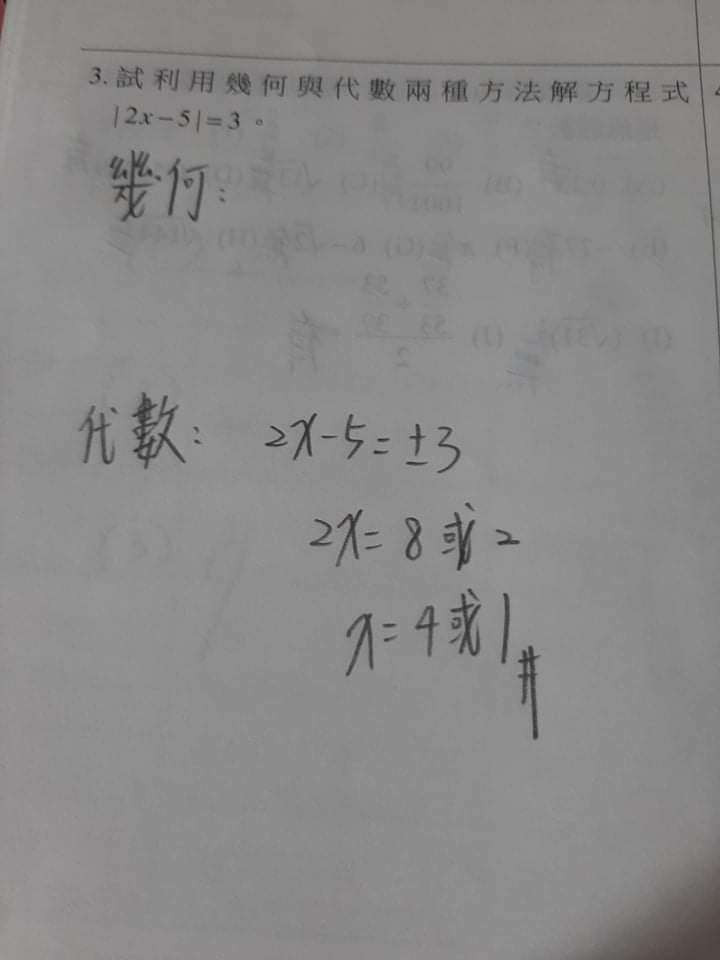 3. 試利用幾何與代數兩種方法解方程式
|2x-5|=3。
幾何:
代數: 2x-5=±3
2x=8或2
x=4或1#